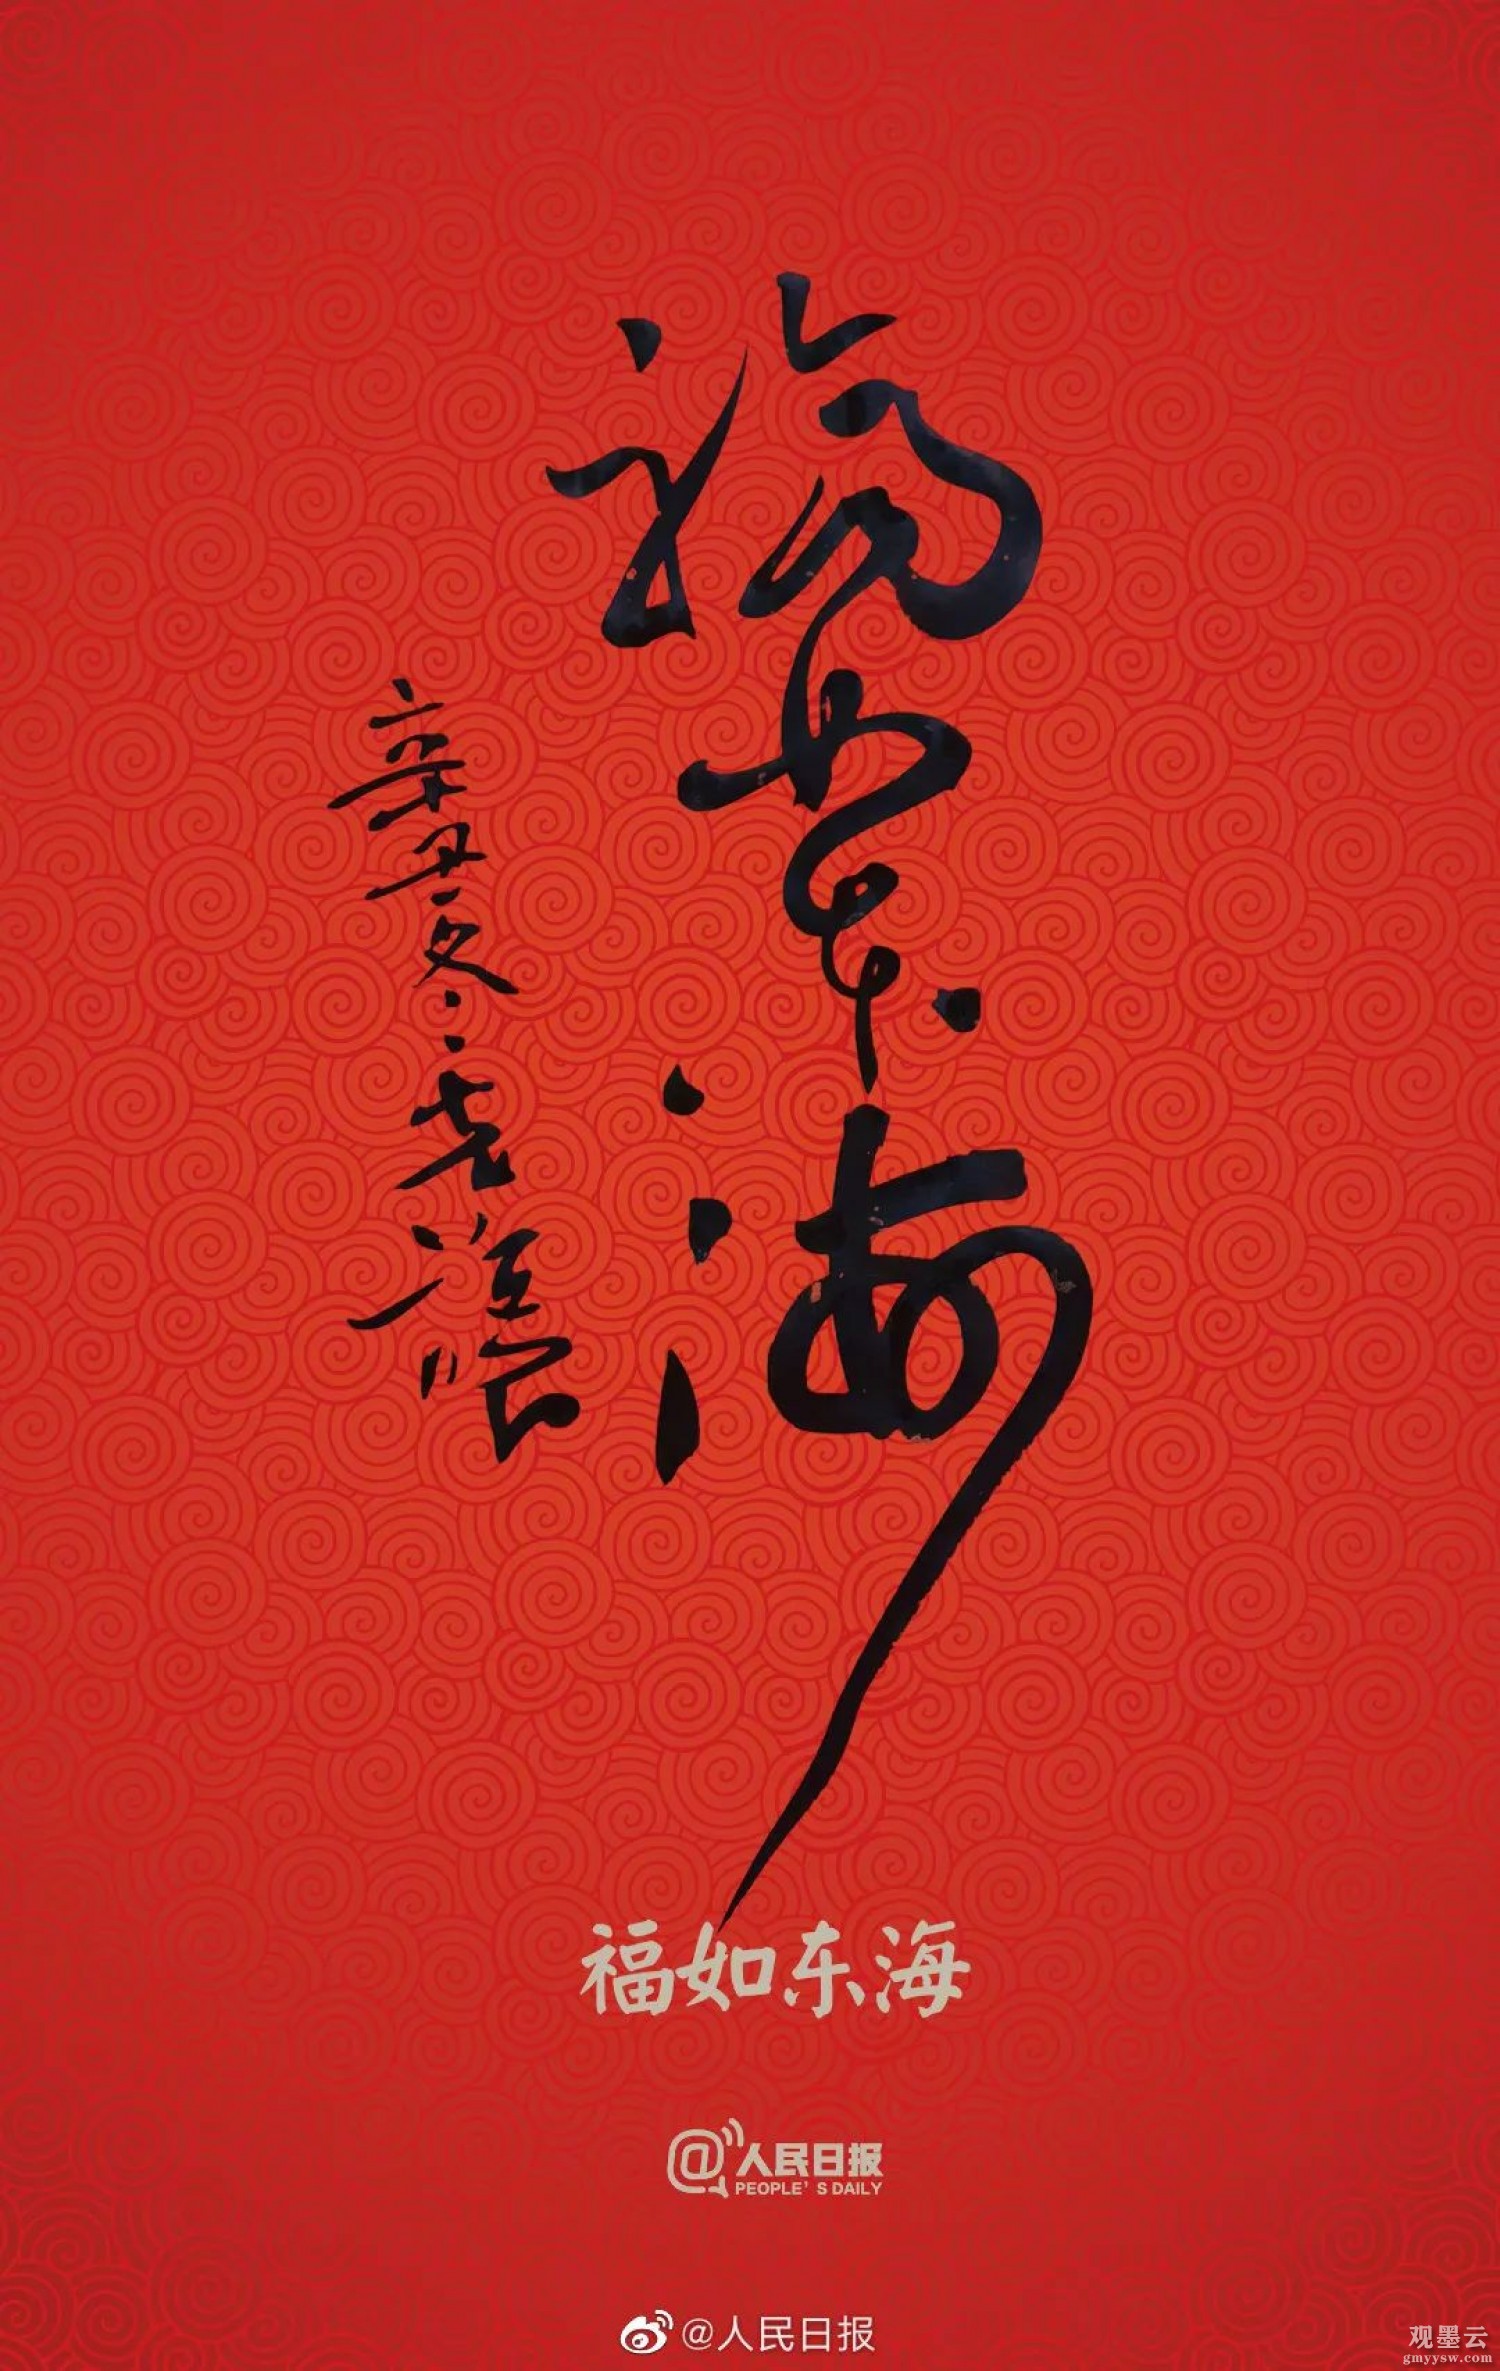 福如东海
辛丑冬
福如东海
@人民日报
PEOPLE'S DAILY
@人民日报
观墨云
gmyysw.com